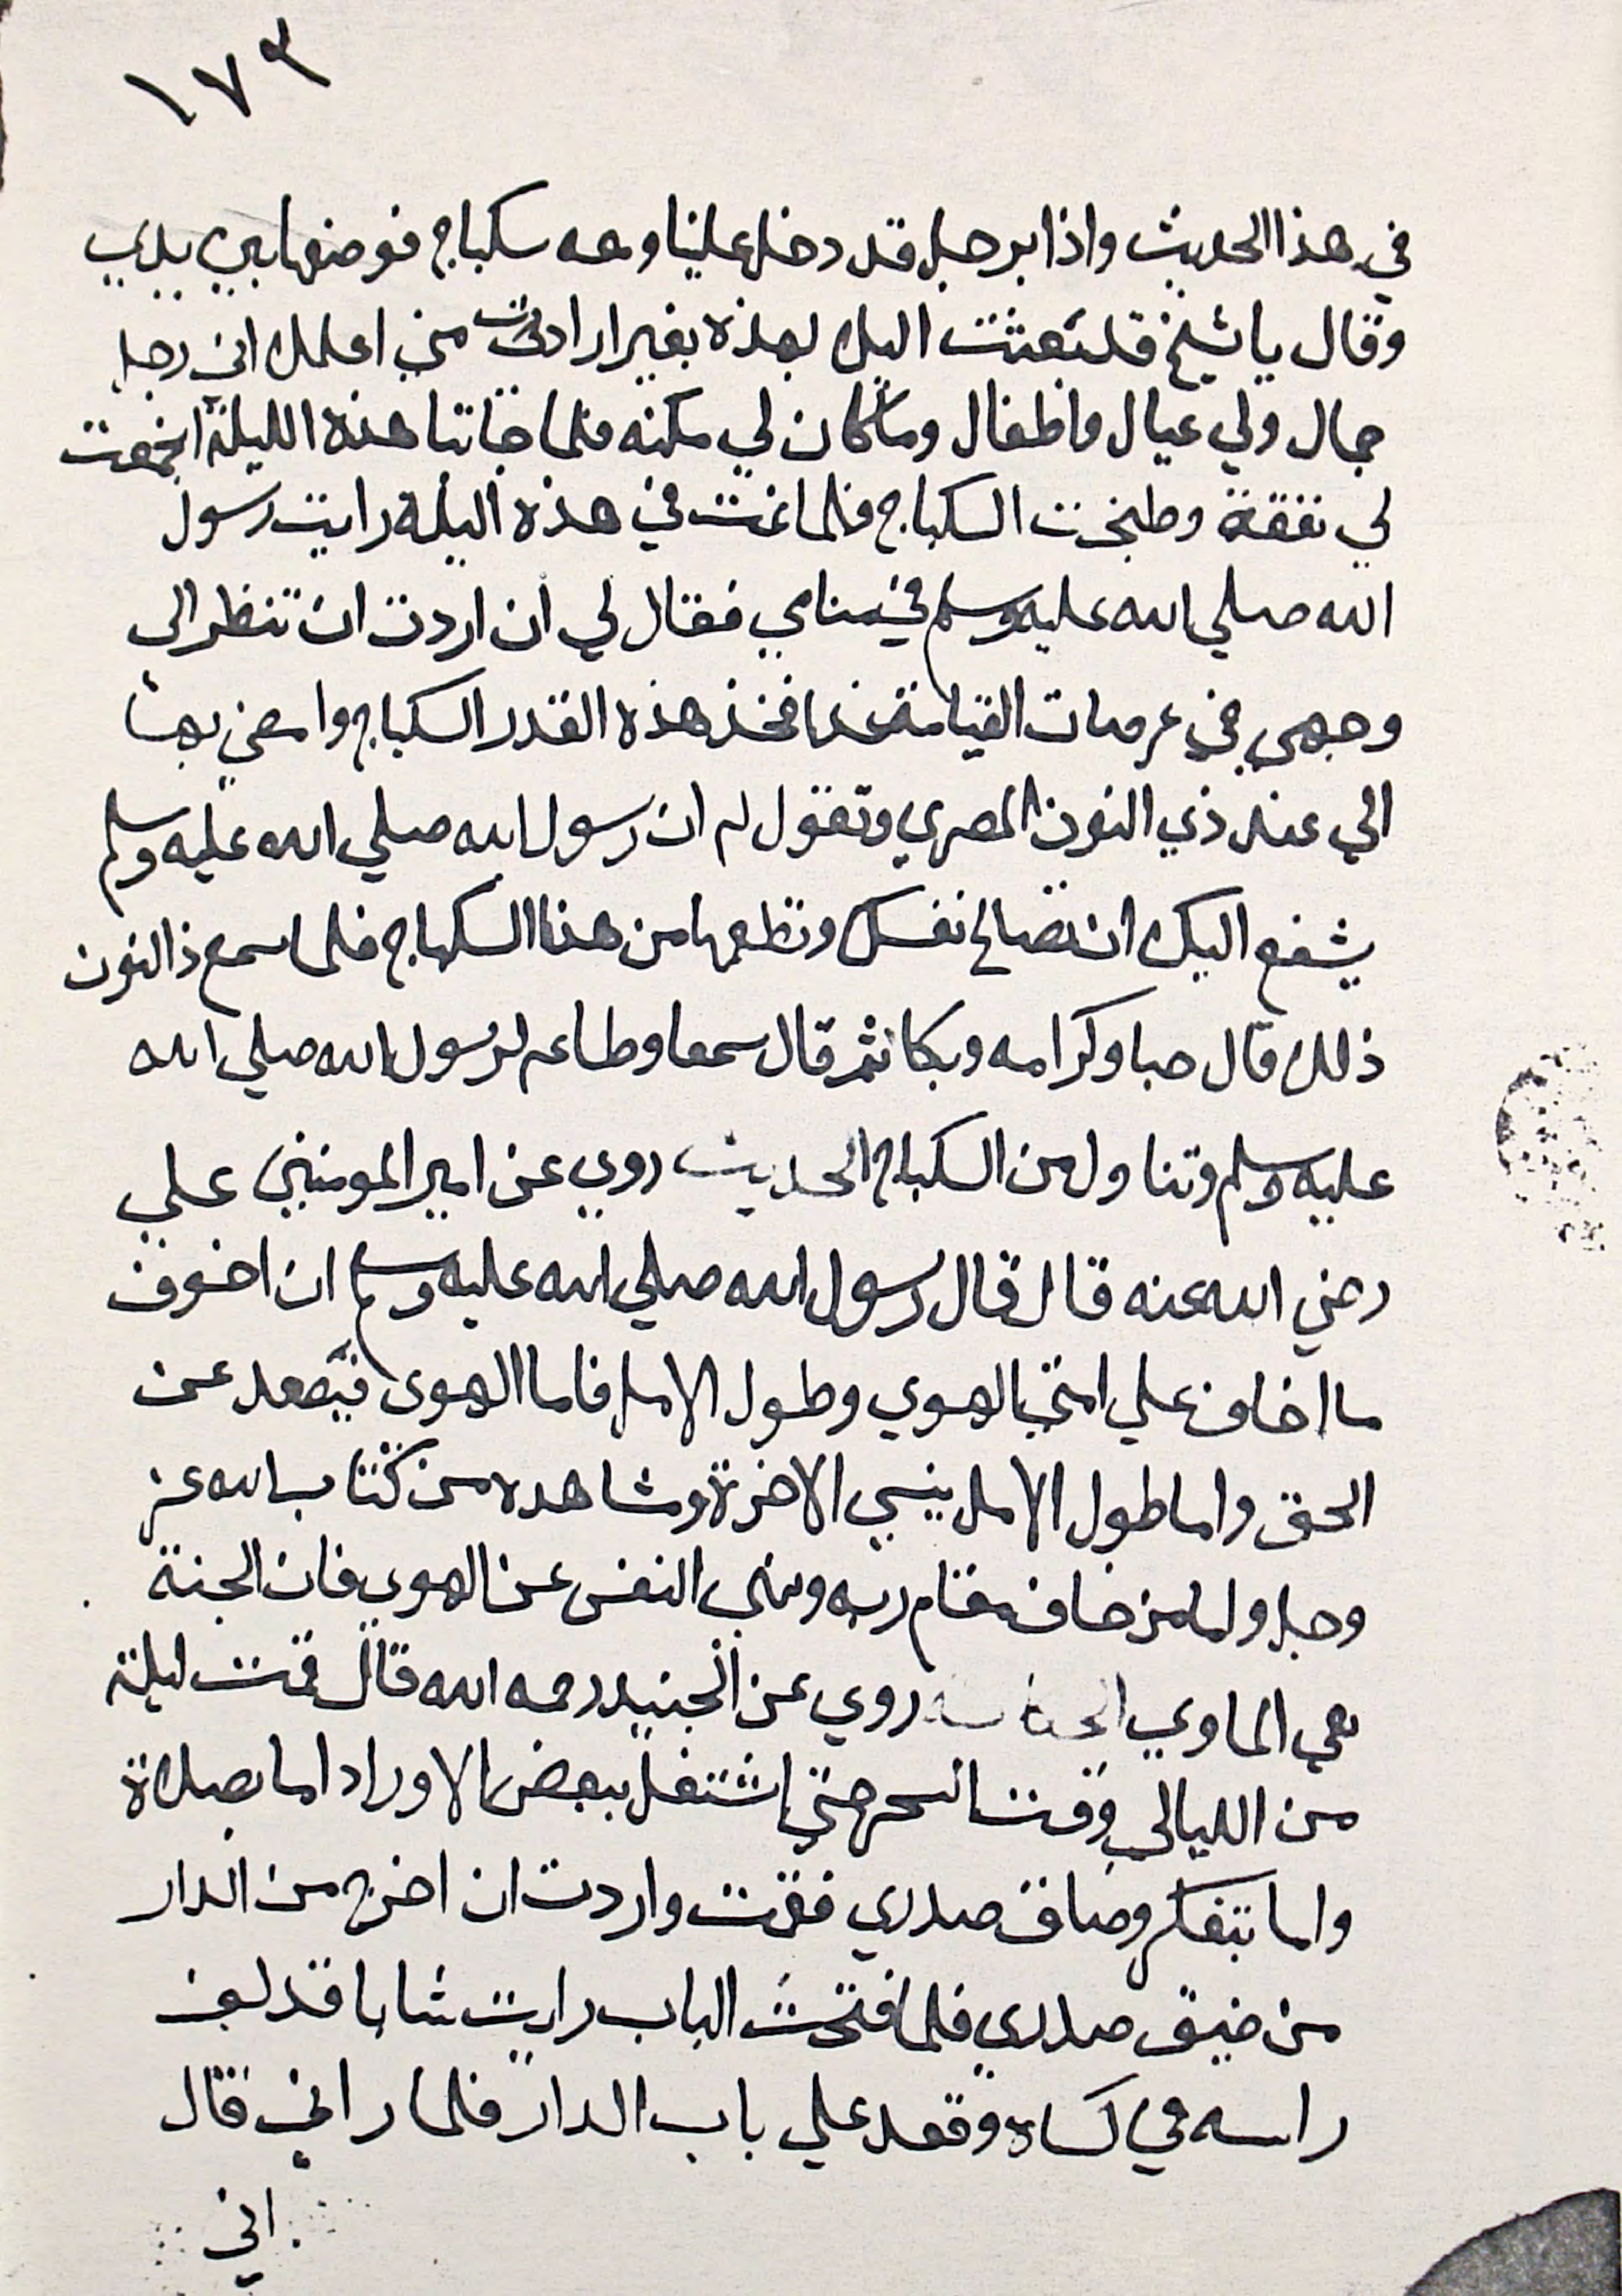 ١٧٣
في هذا الحديث واذا برجل قد دخل علينا ومعه سكباج فوضعها بين يدي
وقال يا شيخ قد بعثت اليك بهذه بغير ارادتي مني اعلمك اني رجل
جمال ولي عيال واطفال وما كان لي مكنه فلما جاتنا هذه الليلة اجتمعت
لي نفقة وطبخت السكباج فلما نمت في هذه اليلة رايت رسول
الله صلي الله عليه وسلم في منامي فقال لي ان اردت ان تنظر الى
وجهي في عرصات القيامة غدا فخذ هذه القدر السكباج وامضي بها
الي عند ذي النون المصري وتقول له ان رسول الله صلي الله عليه وسلم
يشفع اليك ان تصالح نفسك وتطعمها من هذا السكباج فلما سمع ذا النون
ذلك قال حبا وكرامه وبكا ثم قال سمعا وطاعه لرسول الله صلي الله
عليه وسلم وتناول من السكباج الحديث روي عن امير المومنين علي
رضي الله عنه قال قال رسول الله صلي الله عليه وسلم ان اخوف
ما اخاف علي امتي الهوي وطول الامل فاما الهوى فيصد عن
الحق واما طول الامل ينسي الاخرة وشاهده من كتاب الله عز
وجل واما من خاف مقام ربه ونهي النفس عن الهوي فان الجنة
هي الماوي روي عن الجنيد رحمه الله قال قمت ليلة
من الليالي وقت السحر حتي اشتغل ببعض الاوراد اما بصلاة
واما بتفكر وضاق صدري فقمت واردت ان اخرج من الدار
من ضيق صدري فلما فتحت الباب رايت شابا قد لف
راسه في كساه وقعد علي باب الدار فلما راني قال
اني